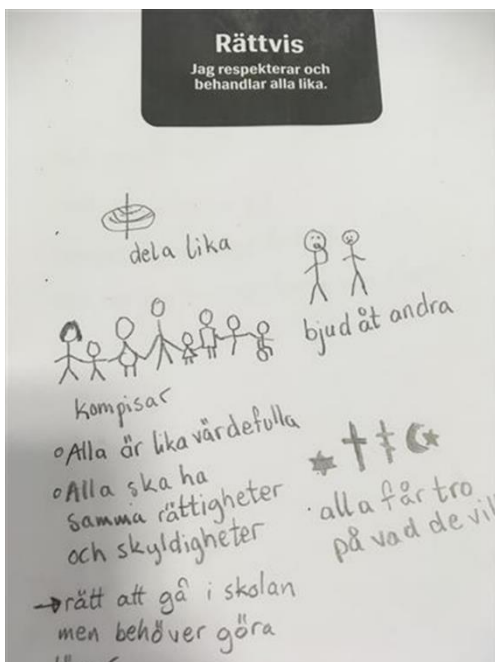 Rättvis
Jag respekterar och
behandlar alla lika.
dela lika
bjud åt andra
kompisar
Alla är lika värdefulla
Alla ska ha
samma rättigheter
och skyldigheter
→ rätt att gå i skolan
men behöver göra
alla får tro
på vad de vill